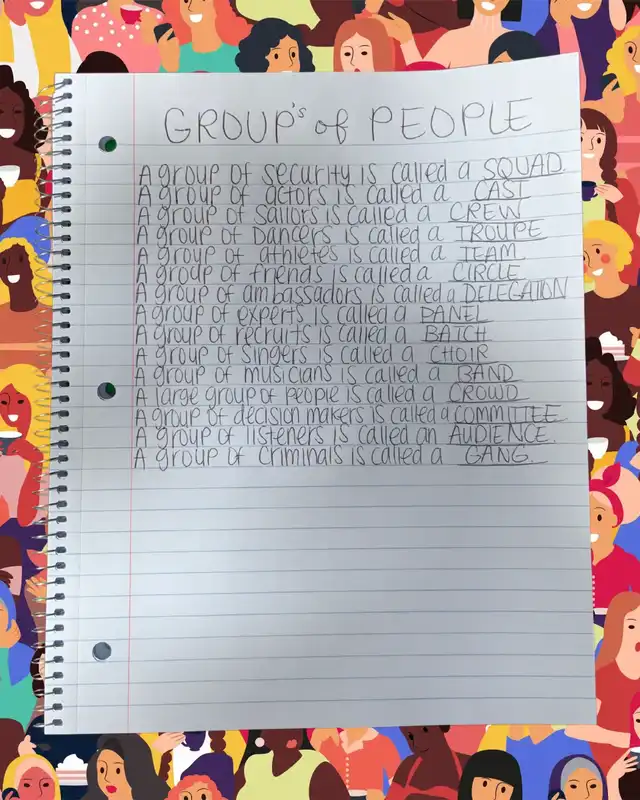 GROUP's of PEOPLE
A group of security is called a SQUAD.
A group of actors is called a CAST
A group of sailors is called a CREW
A group of Dancers is called a TROUPE
A group of athletes is called a TEAM
A group of friends is called a CIRCLE
A group of ambassadors is called a DELEGATION
A group of experts is called a PANEL
A group of recruits is called a BATCH
A group of singers is called a CHOIR
A group of musicians is called a BAND
A large group of people is called a CROWD
A group of decision makers is called a COMMITTEE
A group of listeners is called an AUDIENCE.
A group of criminals is called a GANG.